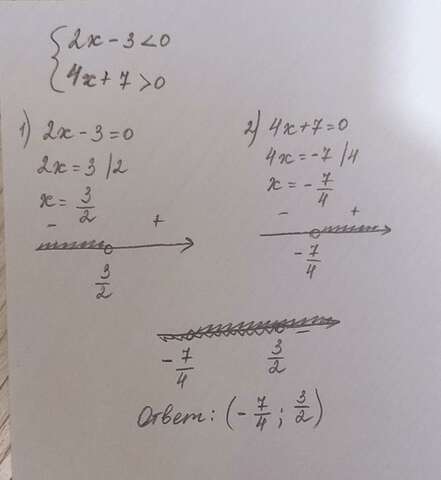 {2x - 3 < 0
{4x + 7 > 0
1) 2x - 3 = 0
2x = 3 /2
x = 3/2
- +
3/2
2) 4x + 7 = 0
4x = -7 /4
x = - 7/4
- +
- 7/4
- 7/4 3/2 -
Ответ: (- 7/4 ; 3/2)